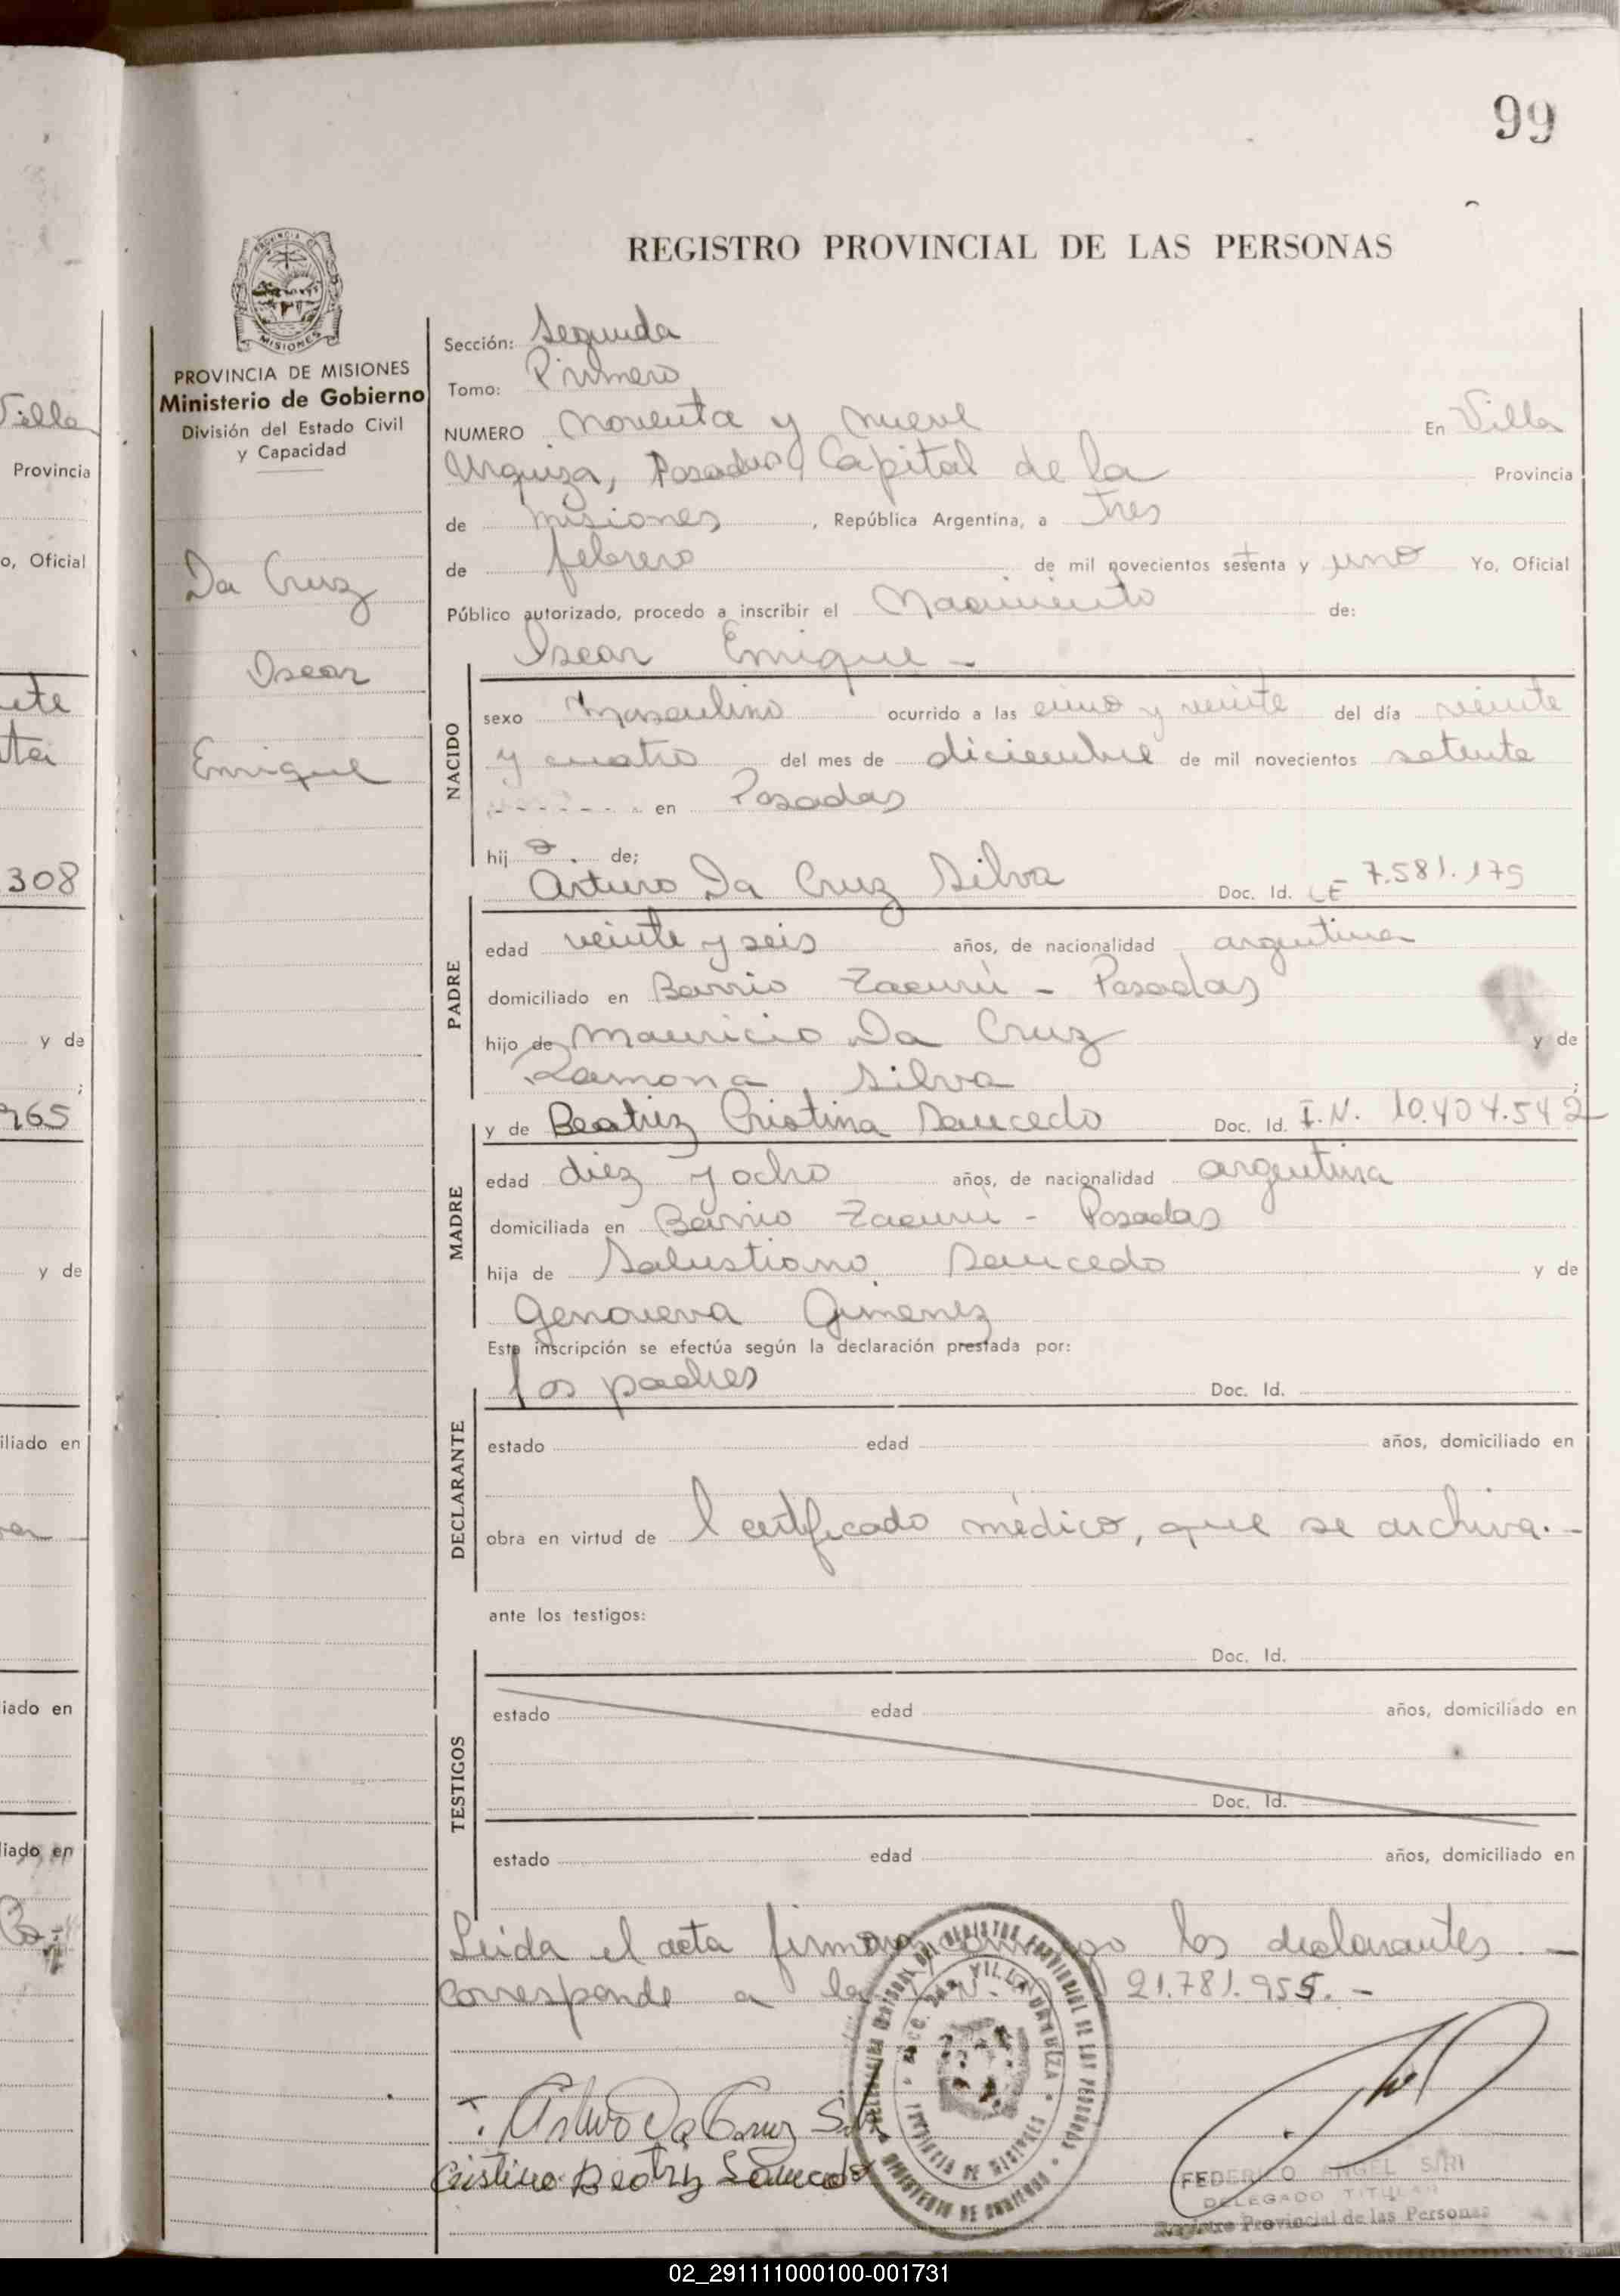 99
REGISTRO PROVINCIAL DE LAS PERSONAS
PROVINCIA DE MISIONES
Ministerio de Gobierno
División del Estado Civil
y Capacidad
Da Cruz
Oscar
Enrique
Sección: Segunda
Tomo: Primero
NUMERO noventa y nueve En Villa
Urquiza, Posadas, Capital de la Provincia
de misiones, República Argentina, a tres
de febrero de mil novecientos setenta y uno Yo, Oficial
Público autorizado, procedo a inscribir el Nacimiento de:
Oscar Enrique -
NACIDO
sexo Masculino ocurrido a las cinco y veinte del día veinte
y cuatro del mes de diciembre de mil novecientos setenta
- - - - - - en Posadas
hijo. de;
Arturo Da Cruz Silva Doc. Id. LE 7.581.175
PADRE
edad veinte y seis años, de nacionalidad argentina
domiciliado en Barrio Zacurú - Posadas
hijo de Mauricio Da Cruz y de
Ramona Silva ;
y de Beatriz Cristina Saucedo Doc. Id. I.N. 10.404.542
MADRE
edad diez y ocho años, de nacionalidad argentina
domiciliada en Barrio Zacurú - Posadas
hija de Salustiano Saucedo y de
Genoveva Gimenez
Esta inscripción se efectúa según la declaración prestada por:
los padres Doc. Id.
DECLARANTE
estado edad años, domiciliado en
obra en virtud de l certificado médico, que se archiva. -
ante los testigos:
Doc. Id.
TESTIGOS
estado edad años, domiciliado en
Doc. Id.
estado edad años, domiciliado en
Leida el acta firman conmigo los declarantes. -
Corresponde a la I.N. 21.781.955. -
Arturo Da Cruz Silva
Cristina Beatriz Saucedo
FEDERICO ANGEL SIRI
DELEGADO TITULAR
Registro Provincial de las Personas
02_291111000100-001731